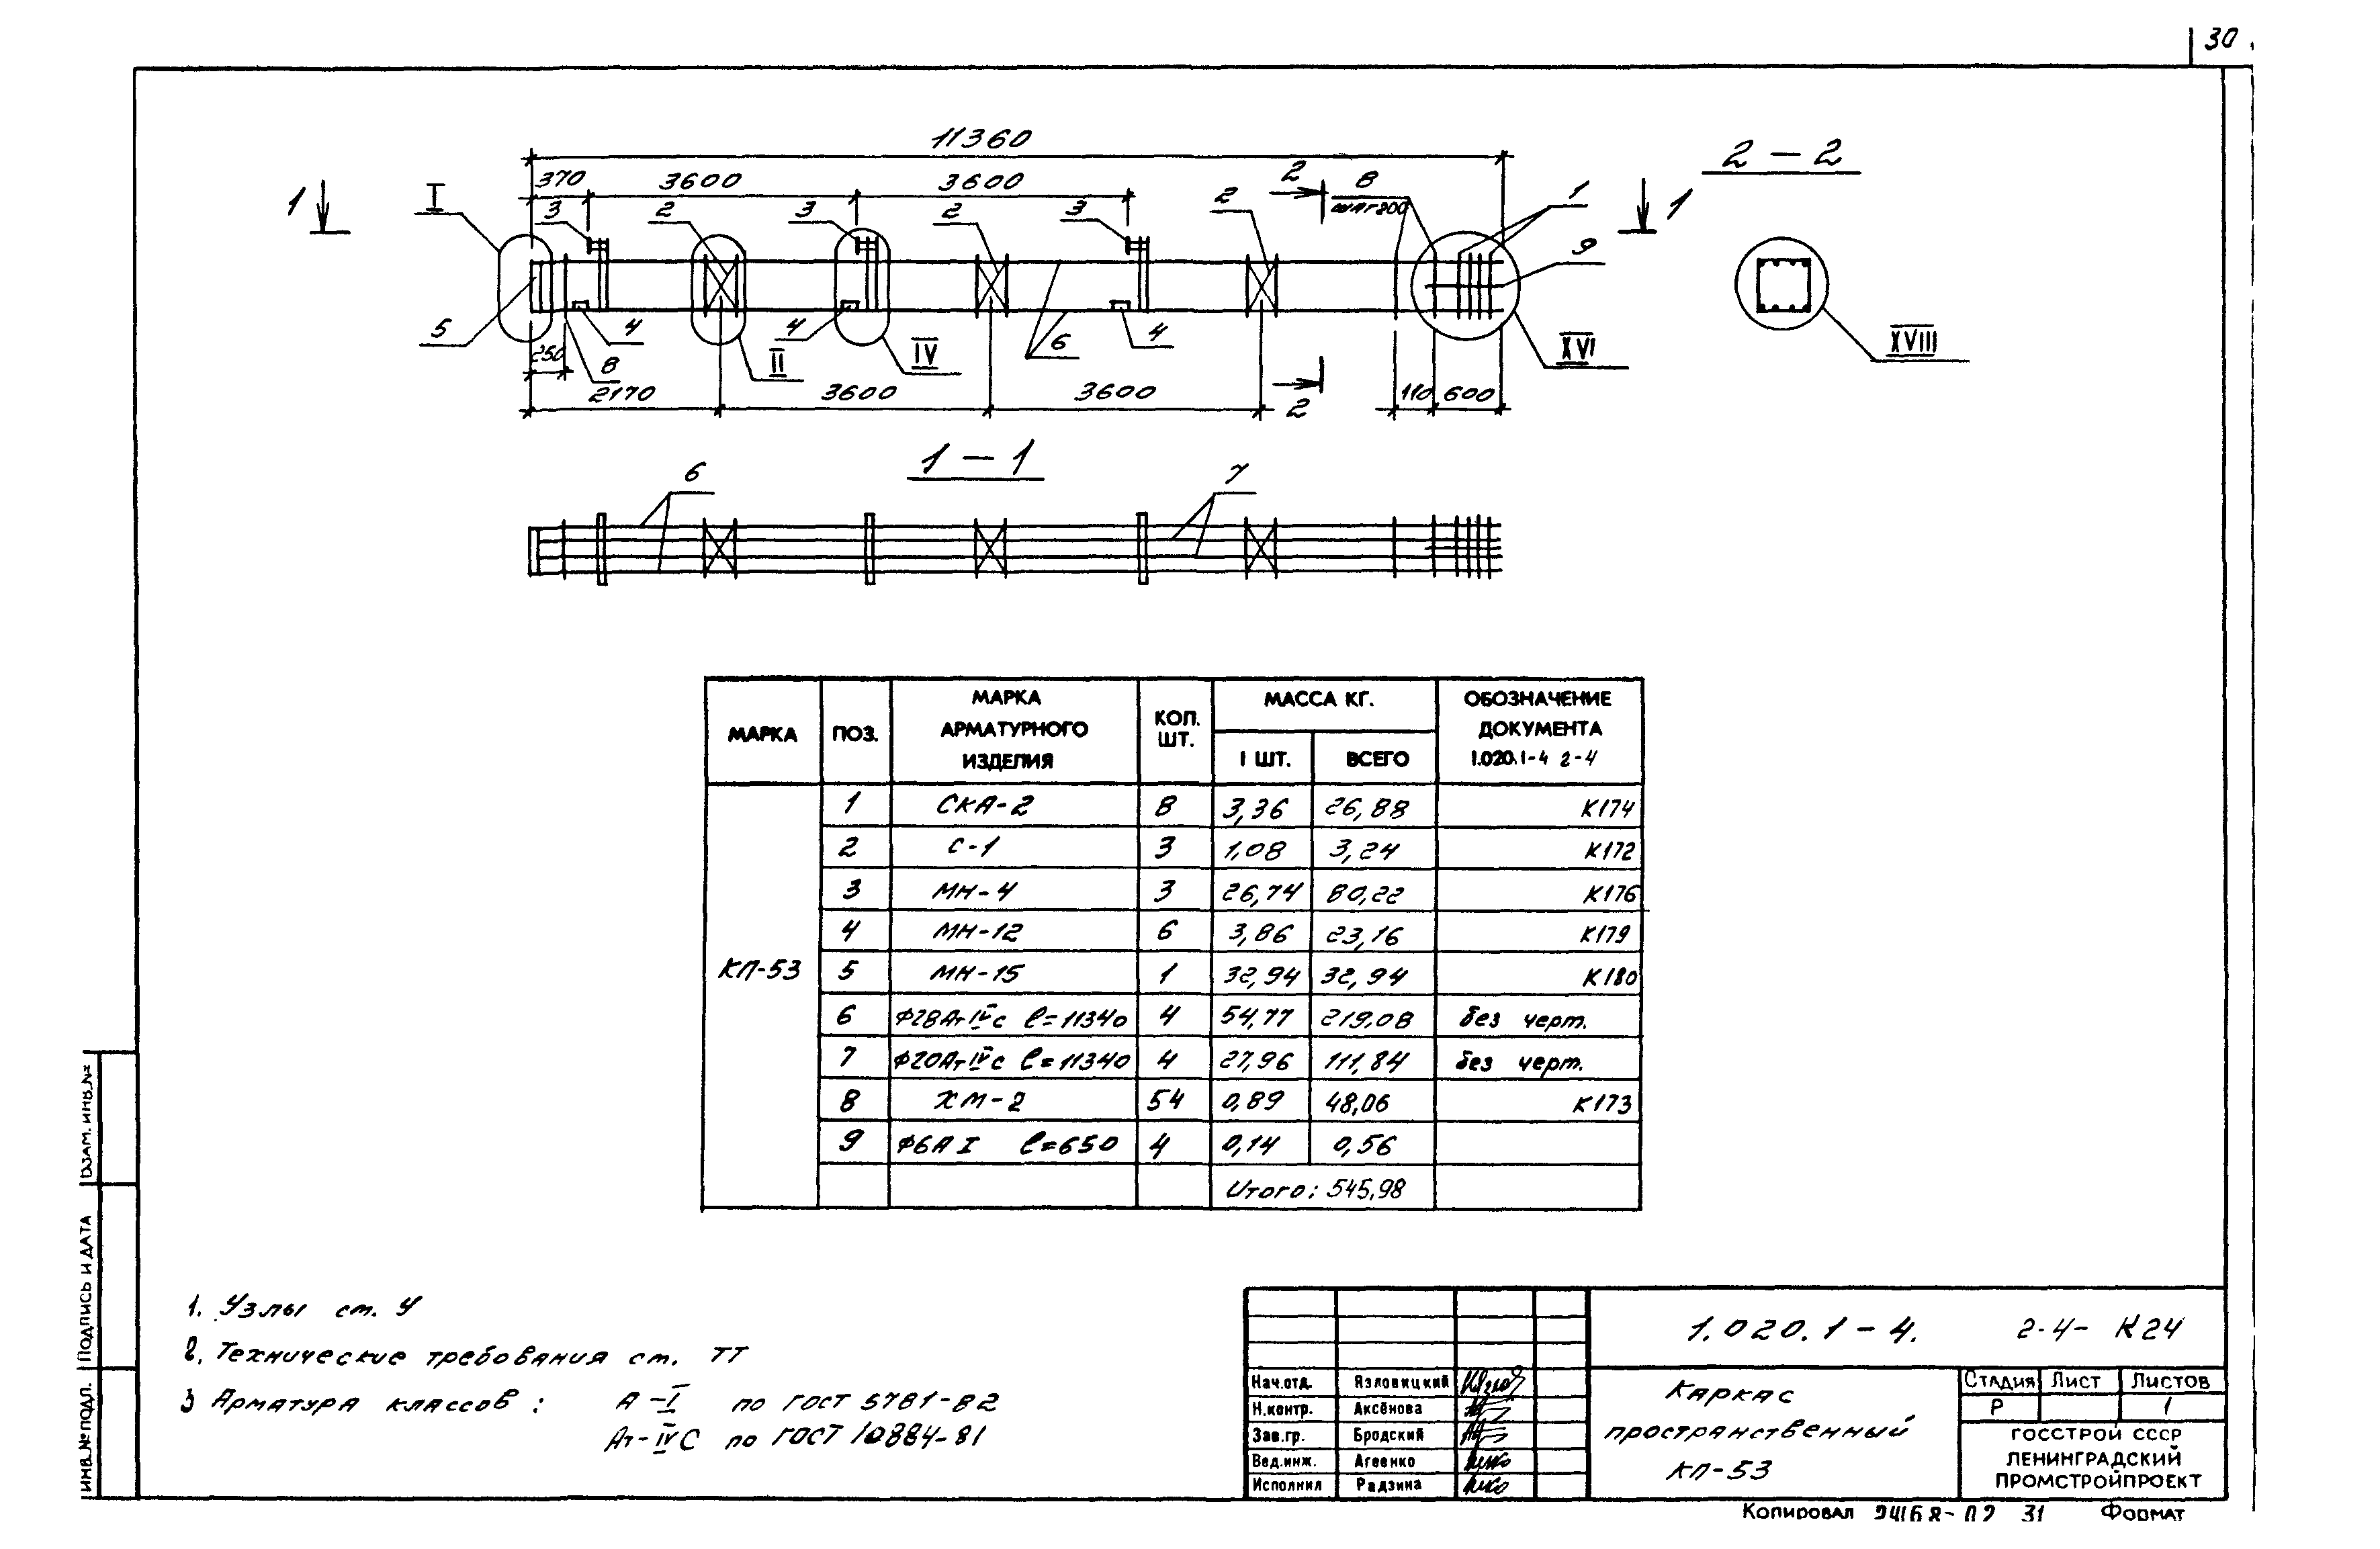 30
11360
2 – 2
370 3600 3600
2 8 1
шаг 200
I
1 3 2 3 2 3 2 1
9
5 4 4 6 4
250 8 II IV XVI XVIII
2170 3600 3600 110 600
2
1 – 1
6 7
МАРКА ПОЗ. МАРКА АРМАТУРНОГО ИЗДЕЛИЯ КОЛ. ШТ. МАССА КГ. ОБОЗНАЧЕНИЕ ДОКУМЕНТА 1.020.1-4 2-4
1 ШТ. ВСЕГО
КП-53
1 СКА-2 8 3,36 26,88 К174
2 С-1 3 1,08 3,24 К172
3 МН-4 3 26,74 80,22 К176
4 МН-12 6 3,86 23,16 К179
5 МН-15 1 32,94 32,94 К180
6 Ф28Ат IVс ℓ=11340 4 54,77 219,08 без черт.
7 Ф20Ат IVс ℓ=11340 4 27,96 111,84 без черт.
8 ХМ-2 54 0,89 48,06 К173
9 Ф6А I ℓ=650 4 0,14 0,56
Итого: 545,98
1. Узлы ст. У
2. Технические требования ст. ТТ
3 Арматура классов: А-I по ГОСТ 5781-82
Ат-IVС по ГОСТ 10884-81
ВЗАМ. ИНВ.№
ПОДПИСЬ И ДАТА
ИНВ.№ ПОДЛ.
1.020.1-4. 2-4- К24
Нач.отд. Язловицкий
Н.контр. Аксёнова
Зав.гр. Бродский
Вед.инж. Агеенко
Исполнил Радзина
Каркас
пространственный
КП-53
Стадия Лист Листов
Р 1
ГОССТРОЙ СССР
ЛЕНИНГРАДСКИЙ
ПРОМСТРОЙПРОЕКТ
Копировал 31 Формат